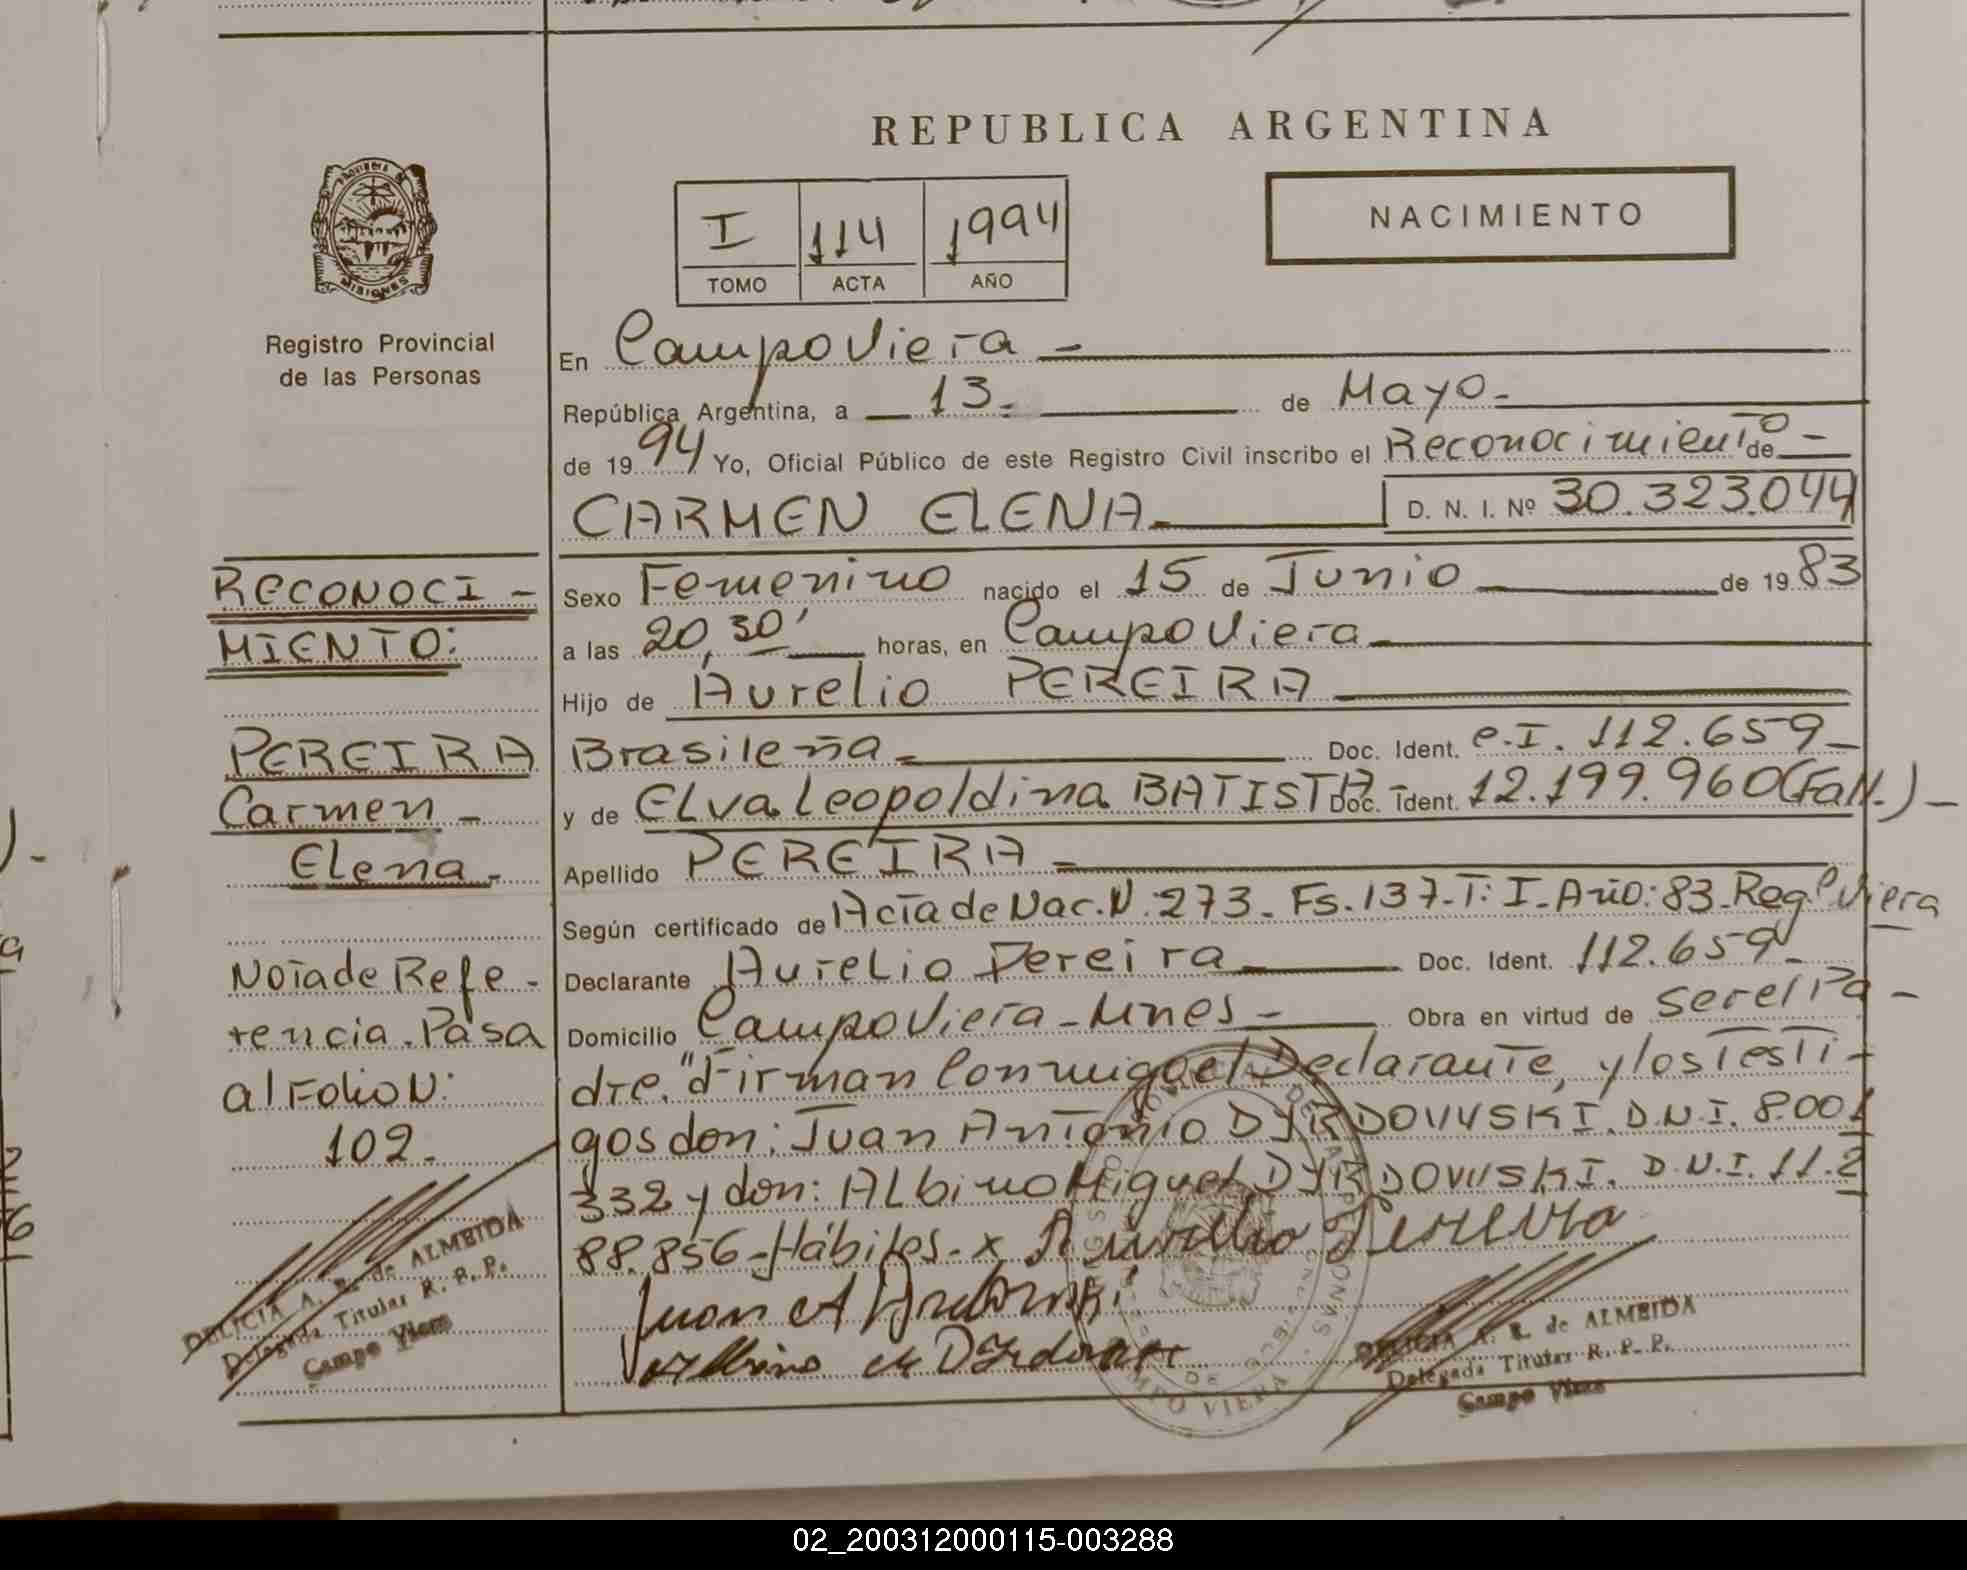 REPUBLICA ARGENTINA
NACIMIENTO
I 114 1994
TOMO ACTA AÑO
MISIONES
Registro Provincial
de las Personas
En Campo Viera -
República Argentina, a 13 - de Mayo -
de 1994 Yo, Oficial Público de este Registro Civil inscribo el Reconocimiento de -
CARMEN ELENA - D. N. I. Nº 30.323.044
RECONOCI -
MIENTO:
PEREIRA
Carmen -
Elena -
Nota de Refe -
rencia. Pasa
al Folio N:
102 -
Sexo Femenino nacido el 15 de Junio de 1983
a las 20,30' horas, en Campo Viera -
Hijo de Aurelio PEREIRA
Brasileña - Doc. Ident. C.I. 112.659 -
y de Elva Leopoldina BATISTA - Doc. Ident. 12.199.960 (Fall.) -
Apellido PEREIRA -
Según certificado de Acta de Nac. N: 273 - Fs. 137 - T: I - Año: 83 - Reg. C. Viera
Declarante Aurelio Pereira - Doc. Ident. 112.659 -
Domicilio Campo Viera - Mnes - Obra en virtud de ser el Pa -
dre. "Firman Conmigo el Declarante, y los Testi -
gos don: Juan Antonio DYRDOWSKI. D.N.I. 8.001
332 y don: Albino Miguel DYRDOWSKI. D.N.I. 11.2
88.856 - Hábiles - x Aurelio Pereira
Juan A
Albino M
DELICIA A. R. de ALMEIDA
Delegada Titular R. P. P.
Campo Viera
DELICIA A. R. de ALMEIDA
Delegada Titular R. P. P.
Campo Viera
CAMPO VIERA
02_200312000115-003288